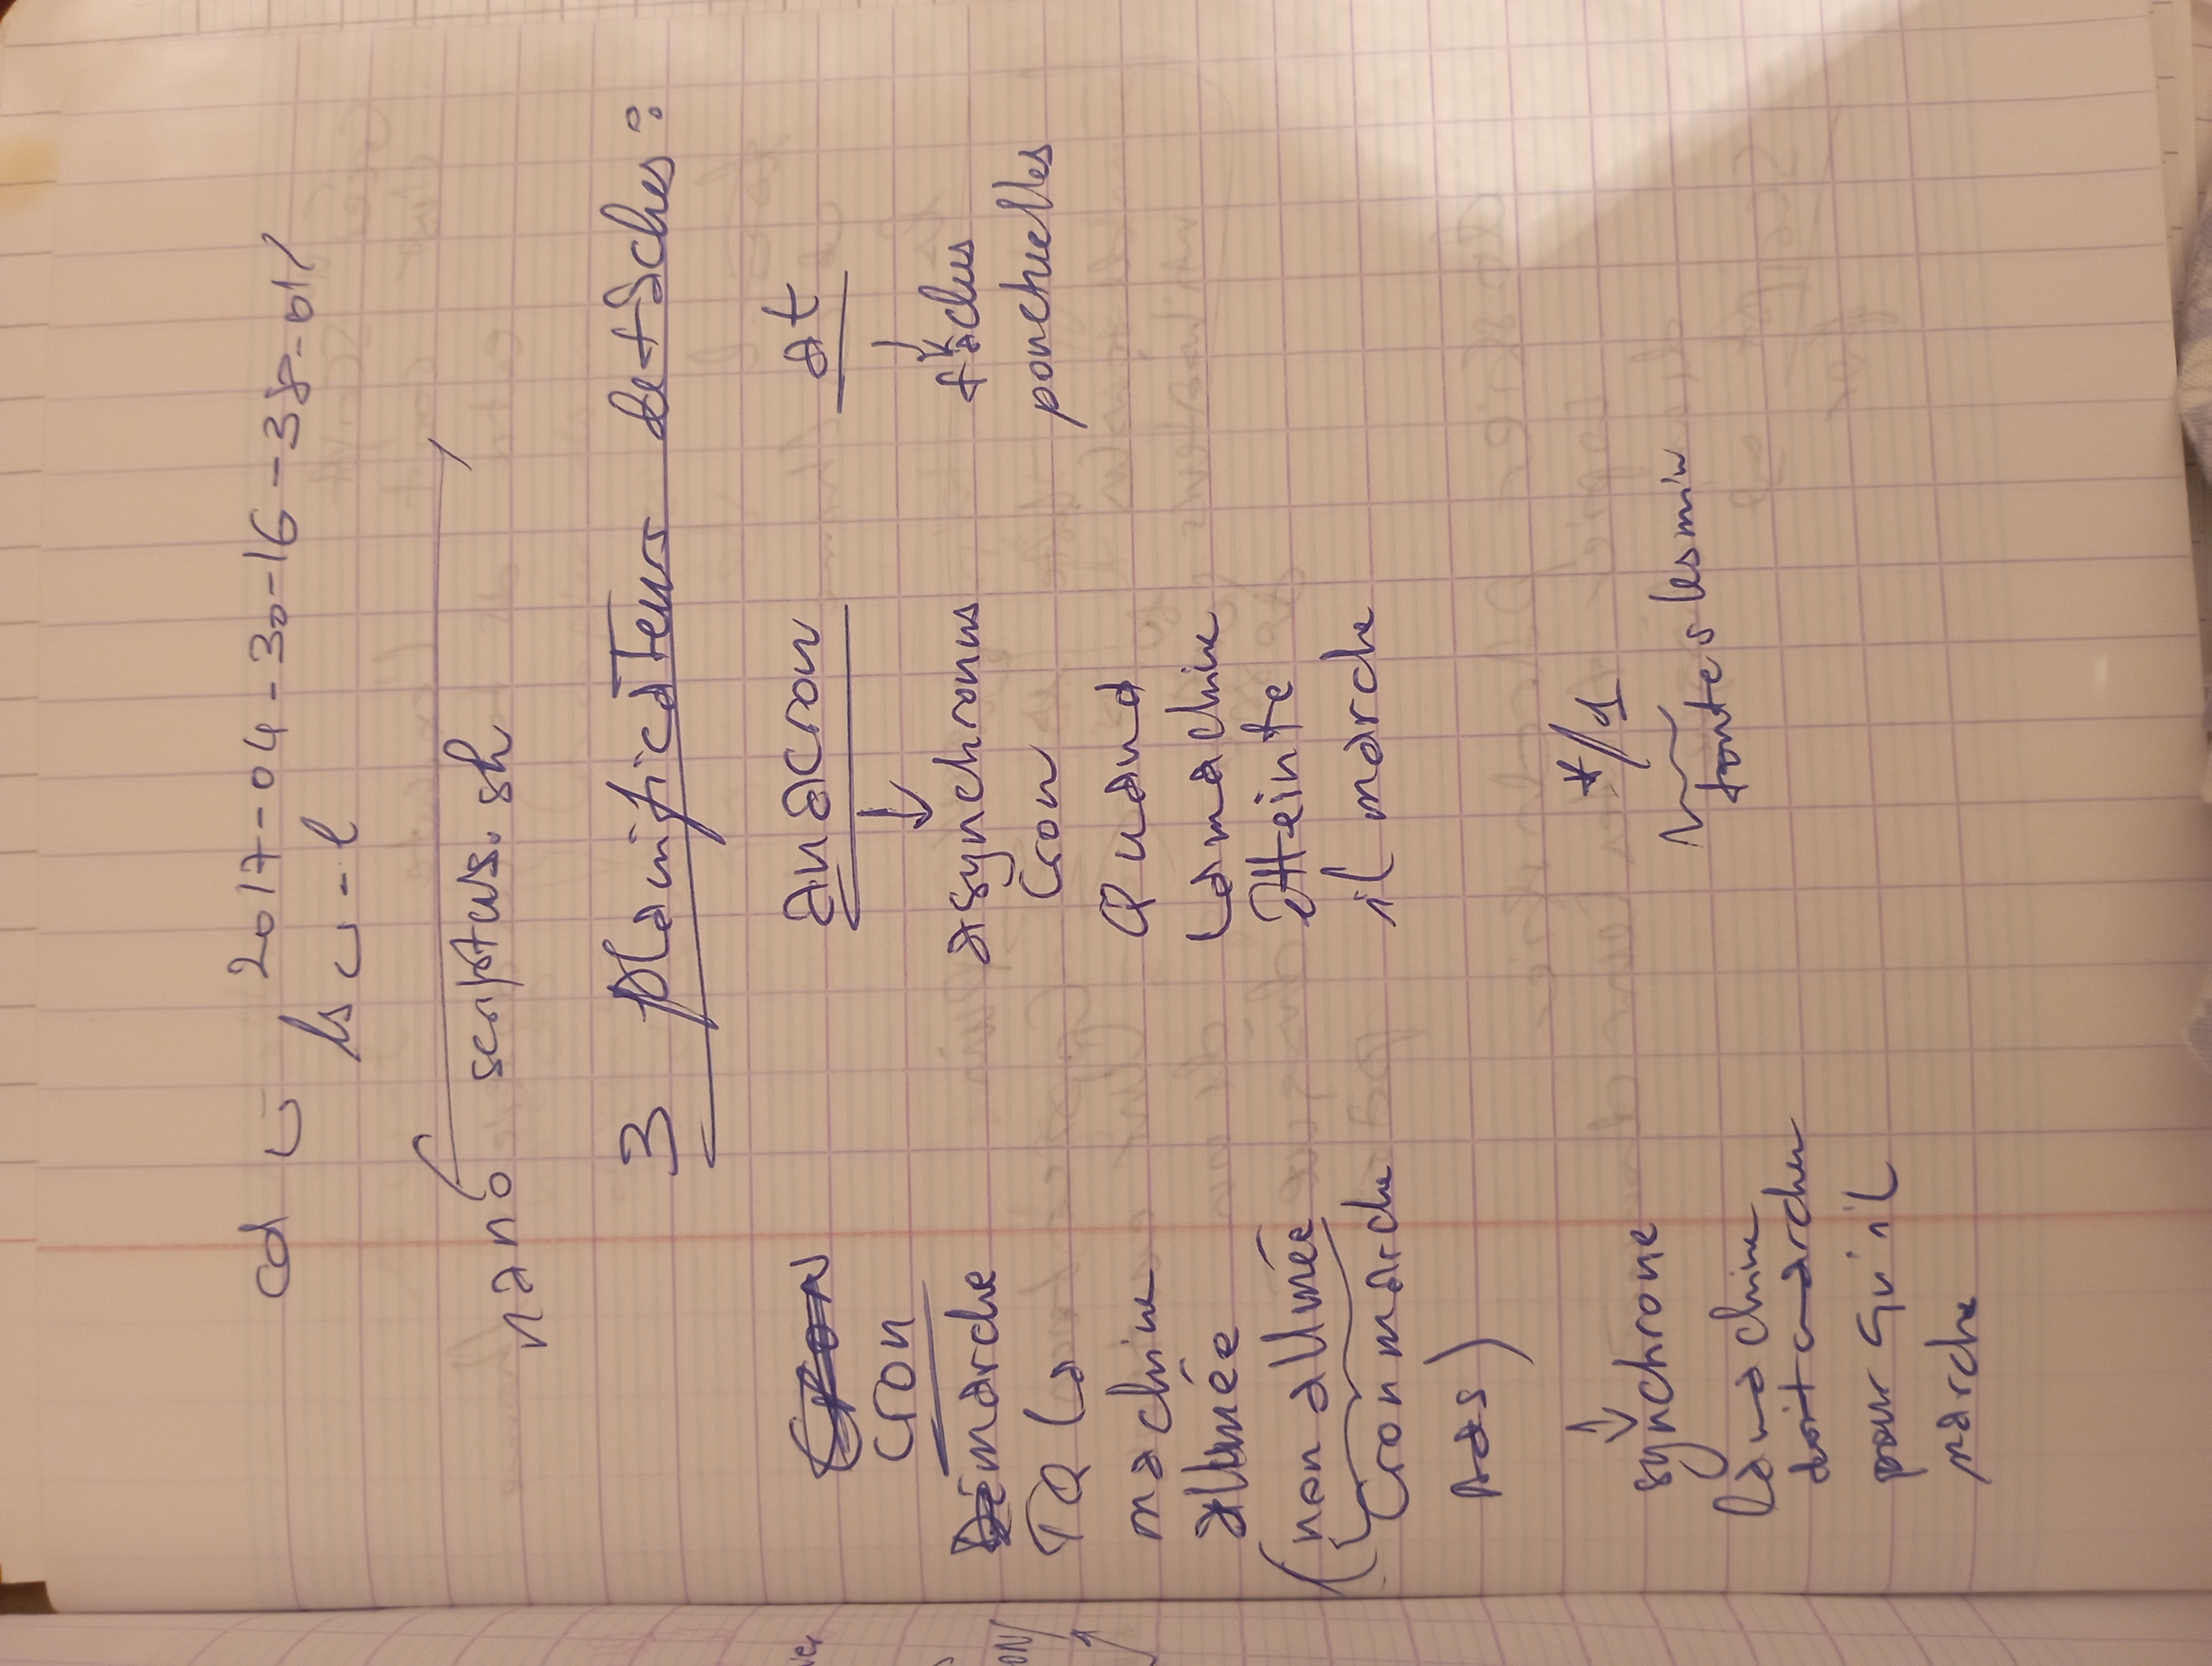 cd ⌣ 2017-04-30-16-38-01/
ls ⌣ -l
nano scriptus.sh
3 planificateurs de tâches:
cron
marche
TQ la
machine
allumée
(non allumée
Cron marche
pas)
synchrone
la machine
doit marcher
pour qu'il
marche
anacron
asynchronus
Cron
Quand
la machine
atteinte
il marche
*/1
toutes les min
at
tâches
ponctuelles